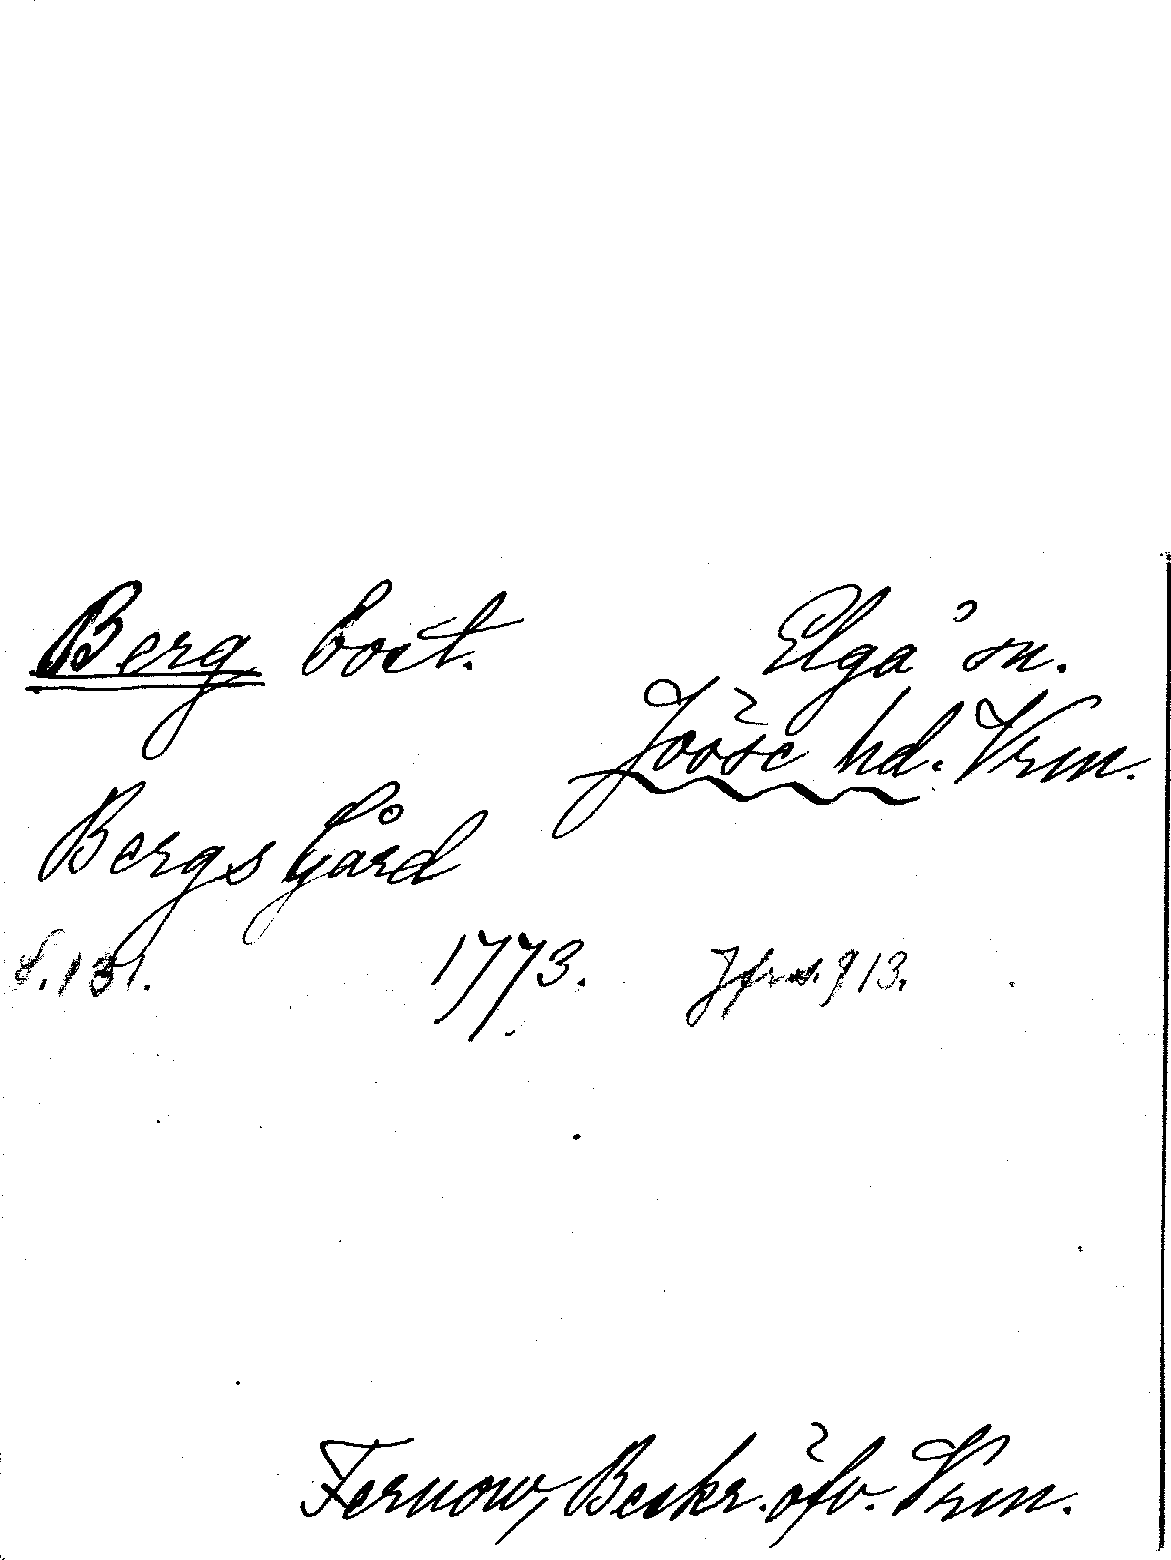 Berg bost. Elga sn.
Jösse hd. Vrm.
Bergs Gård
s. 131. 1773. Jfr s. 913.
Fernow, Beskr. öfv. Vrm.